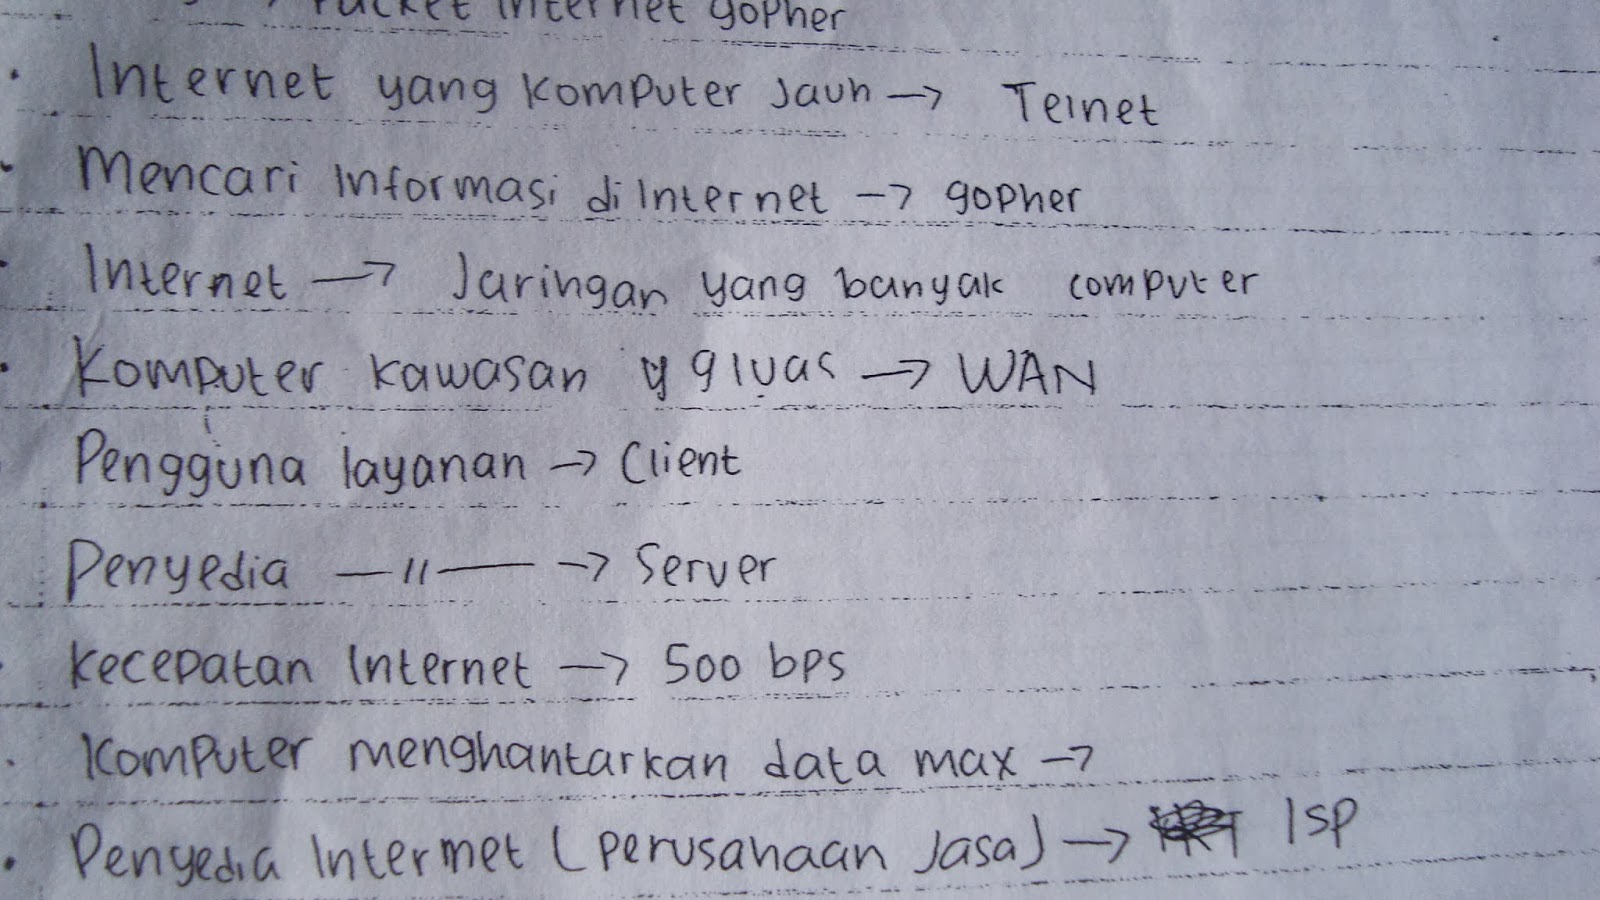 → Packet Internet gopher
Internet yang komputer jauh → Telnet
Mencari Informasi di Internet → gopher
Internet → Jaringan yang banyak computer
Komputer kawasan yg luas → WAN
Pengguna layanan → Client
Penyedia —〃— → Server
Kecepatan Internet → 500 bps
Komputer menghantarkan data max →
Penyedia Internet (perusahaan Jasa) → ISP